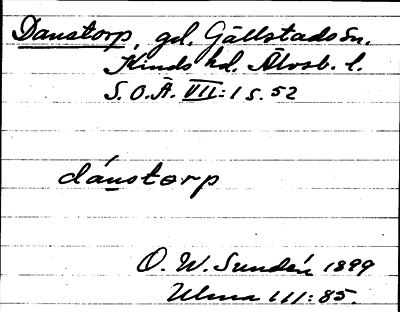 Danstorp, gd. Gällstads sn.
Kinds hd. Älvsb. l.
S.O.Ä. VII:1 s. 52
dánstorp
O. W. Sundén 1899
Ulma 111:85.